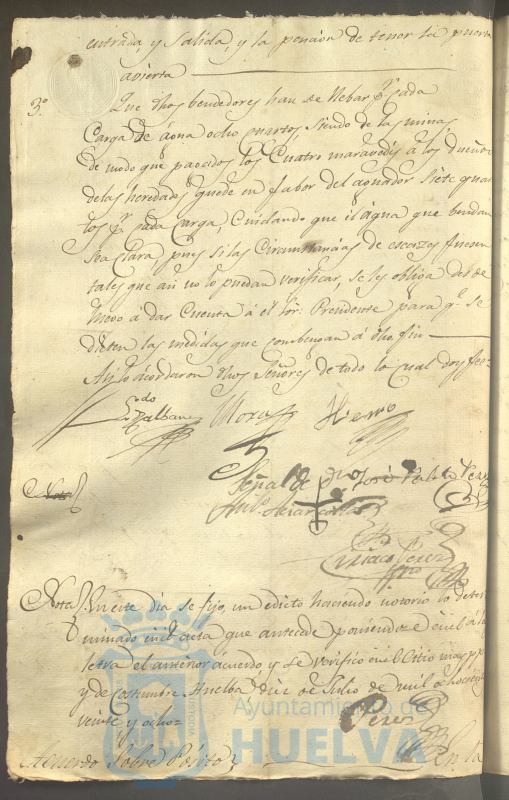 entrada, y Salida, y la pension de tener la puerta
avierta
3.º Que dhos bendedores han de llebar pr. cada
Carga de agua ocho quartos, siendo de las minas
de modo que pagados los Cuatro maravedis á los dueños
delas heredades quede en fabor del aguador siete quar
tos pr. cada Carga, Cuidando que el agua que bendan
sea clara, pues si las Circunstancias de escazes fuesen
tales que asi no lo puedan verificar, se les obliga desde
luego á dar Cuenta á el Sor. Presidente para qe. se
dicten las medidas que combengan á dho fin
Asi lo acordaron dhos Señores de todo lo cual doy fee=
Mora Hierro
Señal de José
Perez
Nota En este dia se fijo, un edicto haciendo notorio lo deter
minado en el acta que antecede poniendose en él á la
letra el anterior acuerdo y se verificó en el Sitio mas pp.
y de costumbre. Huelba diez de Julio de mil ochocientos
veinte y ocho=
Perez
Acuerdo Sobre Posito En la
Ayuntamiento de
HUELVA